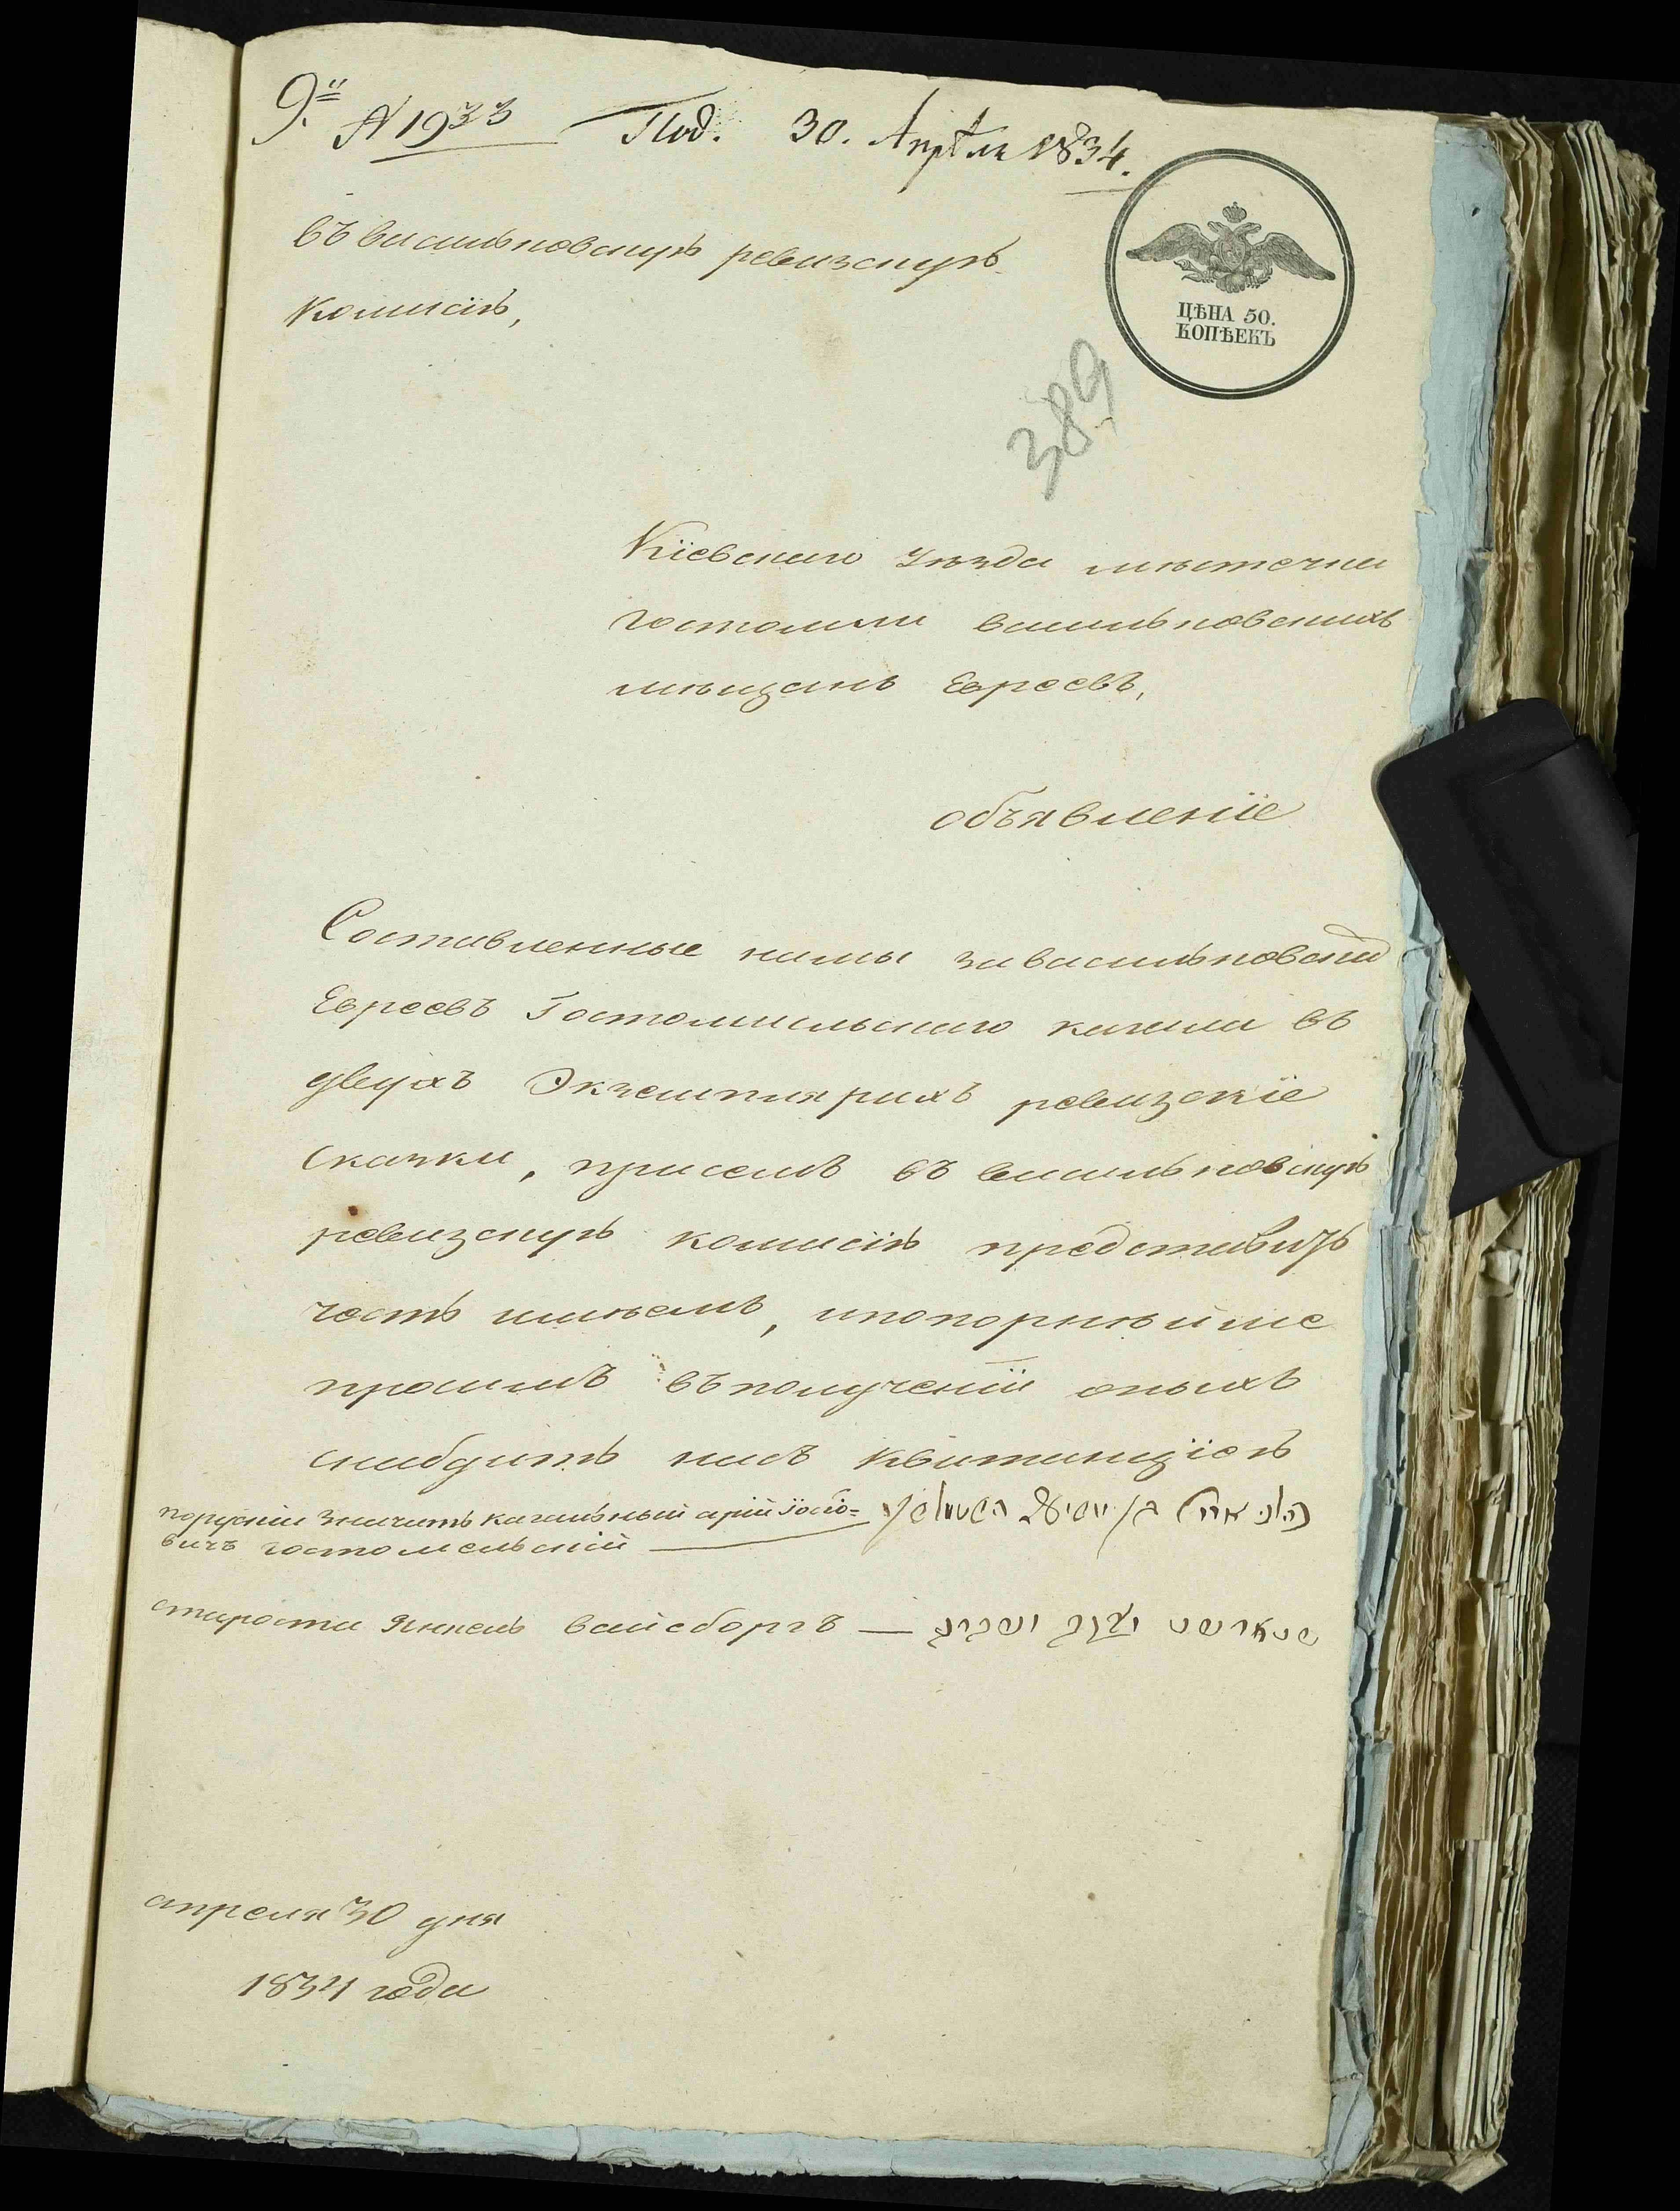 9.
№ 1933 Под. 30. Апрѣля 1834.
въ васильковскую ревизскую
Комисію,
ЦѢНА 50.
КОПѢЕКЪ
389
Кіевскаго Уѣзда мѣстечка
гостомли васильковскихъ
мѣщанъ Евреевъ,
объявленіе
Составленные намы за васильковски
Евреевъ Гостомлильскаго кагала въ
двухъ Экземплярахъ ревизскіе
скаски, присемъ въ васильковскую
ревизскую комисію представить
честь имѣемъ, и покорнѣйше
просимъ въ полученіи оныхъ
снабдить насъ квитанціею
поруски значитъ кагальный арій Іосіо=
вичъ гостомельскій
староста Янкель вайсборгъ —
апреля 30 дня
1834 года